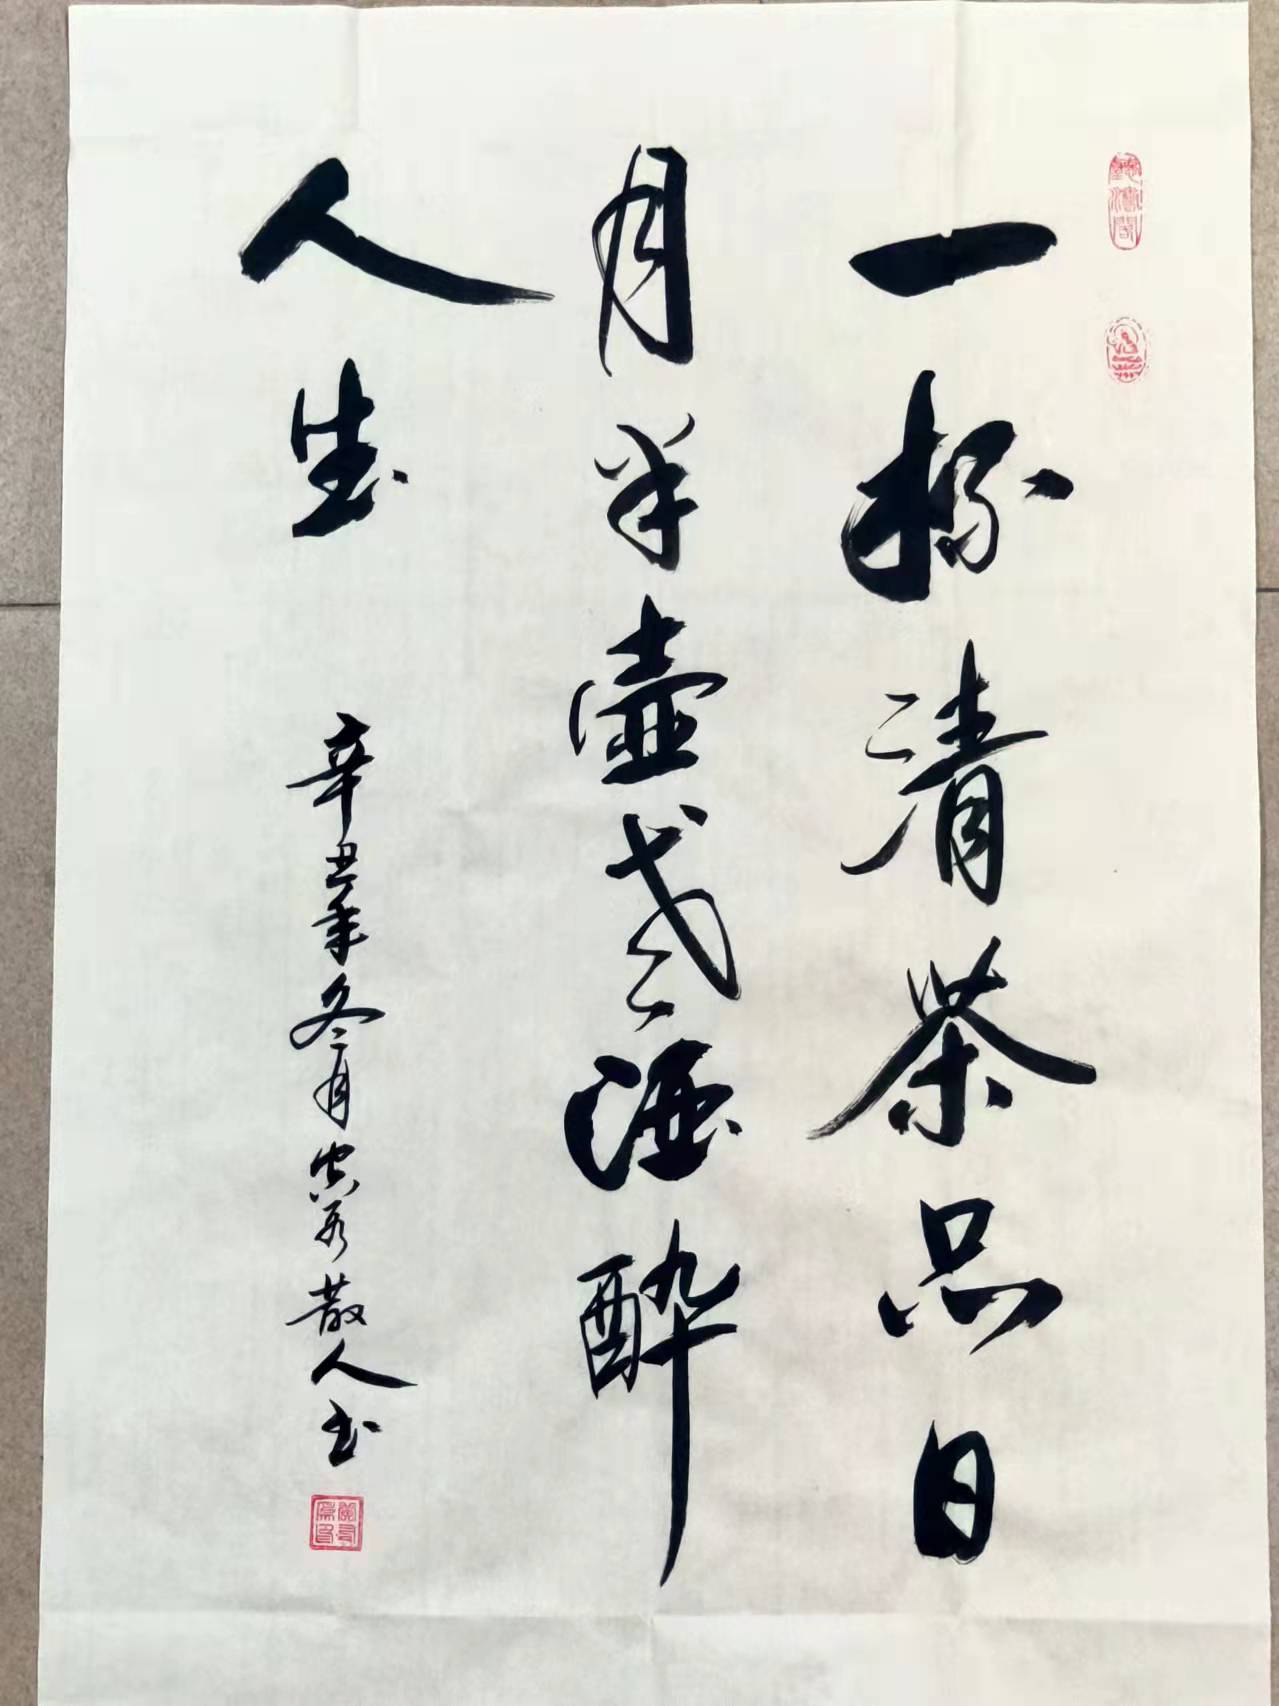 一杯清茶品日
月半壶老酒醉
人生
辛丑年冬月寅若散人书